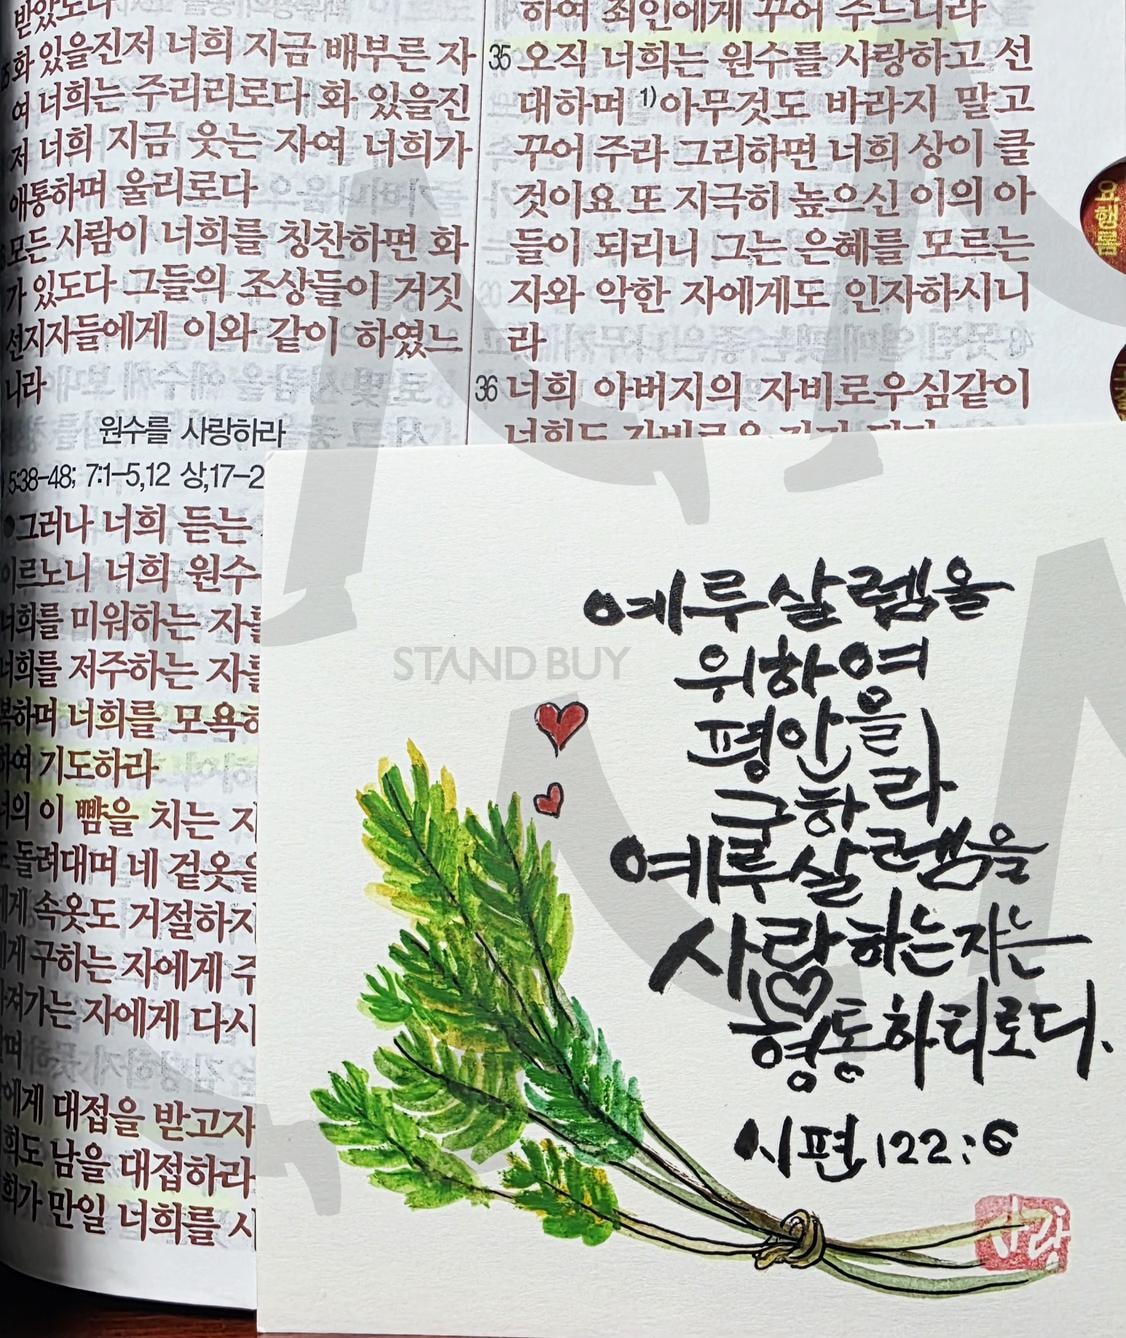 받았도다
화 있을진저 너희 지금 배부른 자
여 너희는 주리리로다 화 있을진
저 너희 지금 웃는 자여 너희가
애통하며 울리로다
모든 사람이 너희를 칭찬하면 화
가 있도다 그들의 조상들이 거짓
선지자들에게 이와 같이 하였느
니라
원수를 사랑하라
5:38-48; 7:1-5,12 상,17-2
그러나 너희 듣는
이르노니 너희 원수
너희를 미워하는 자를
너희를 저주하는 자를
하며 너희를 모욕하
하여 기도하라
너의 이 뺨을 치는 자
도 돌려대며 네 겉옷을
에게 속옷도 거절하지
에게 구하는 자에게 주
가져가는 자에게 다시
며
에게 대접을 받고자
희도 남을 대접하라
희가 만일 너희를 사
하여 죄인에게 꾸어 주느니라
35 오직 너희는 원수를 사랑하고 선
대하며 1)아무것도 바라지 말고
꾸어 주라 그리하면 너희 상이 클
것이요 또 지극히 높으신 이의 아
들이 되리니 그는 은혜를 모르는
자와 악한 자에게도 인자하시니
라
36 너희 아버지의 자비로우심같이
너희도 자비로운 자가 되라
요
행
롬
STAND BUY
예루살렘을
위하여
평안을
구하라
예루살렘을
사랑하는자는
형통하리로다.
시편 122:6
사랑